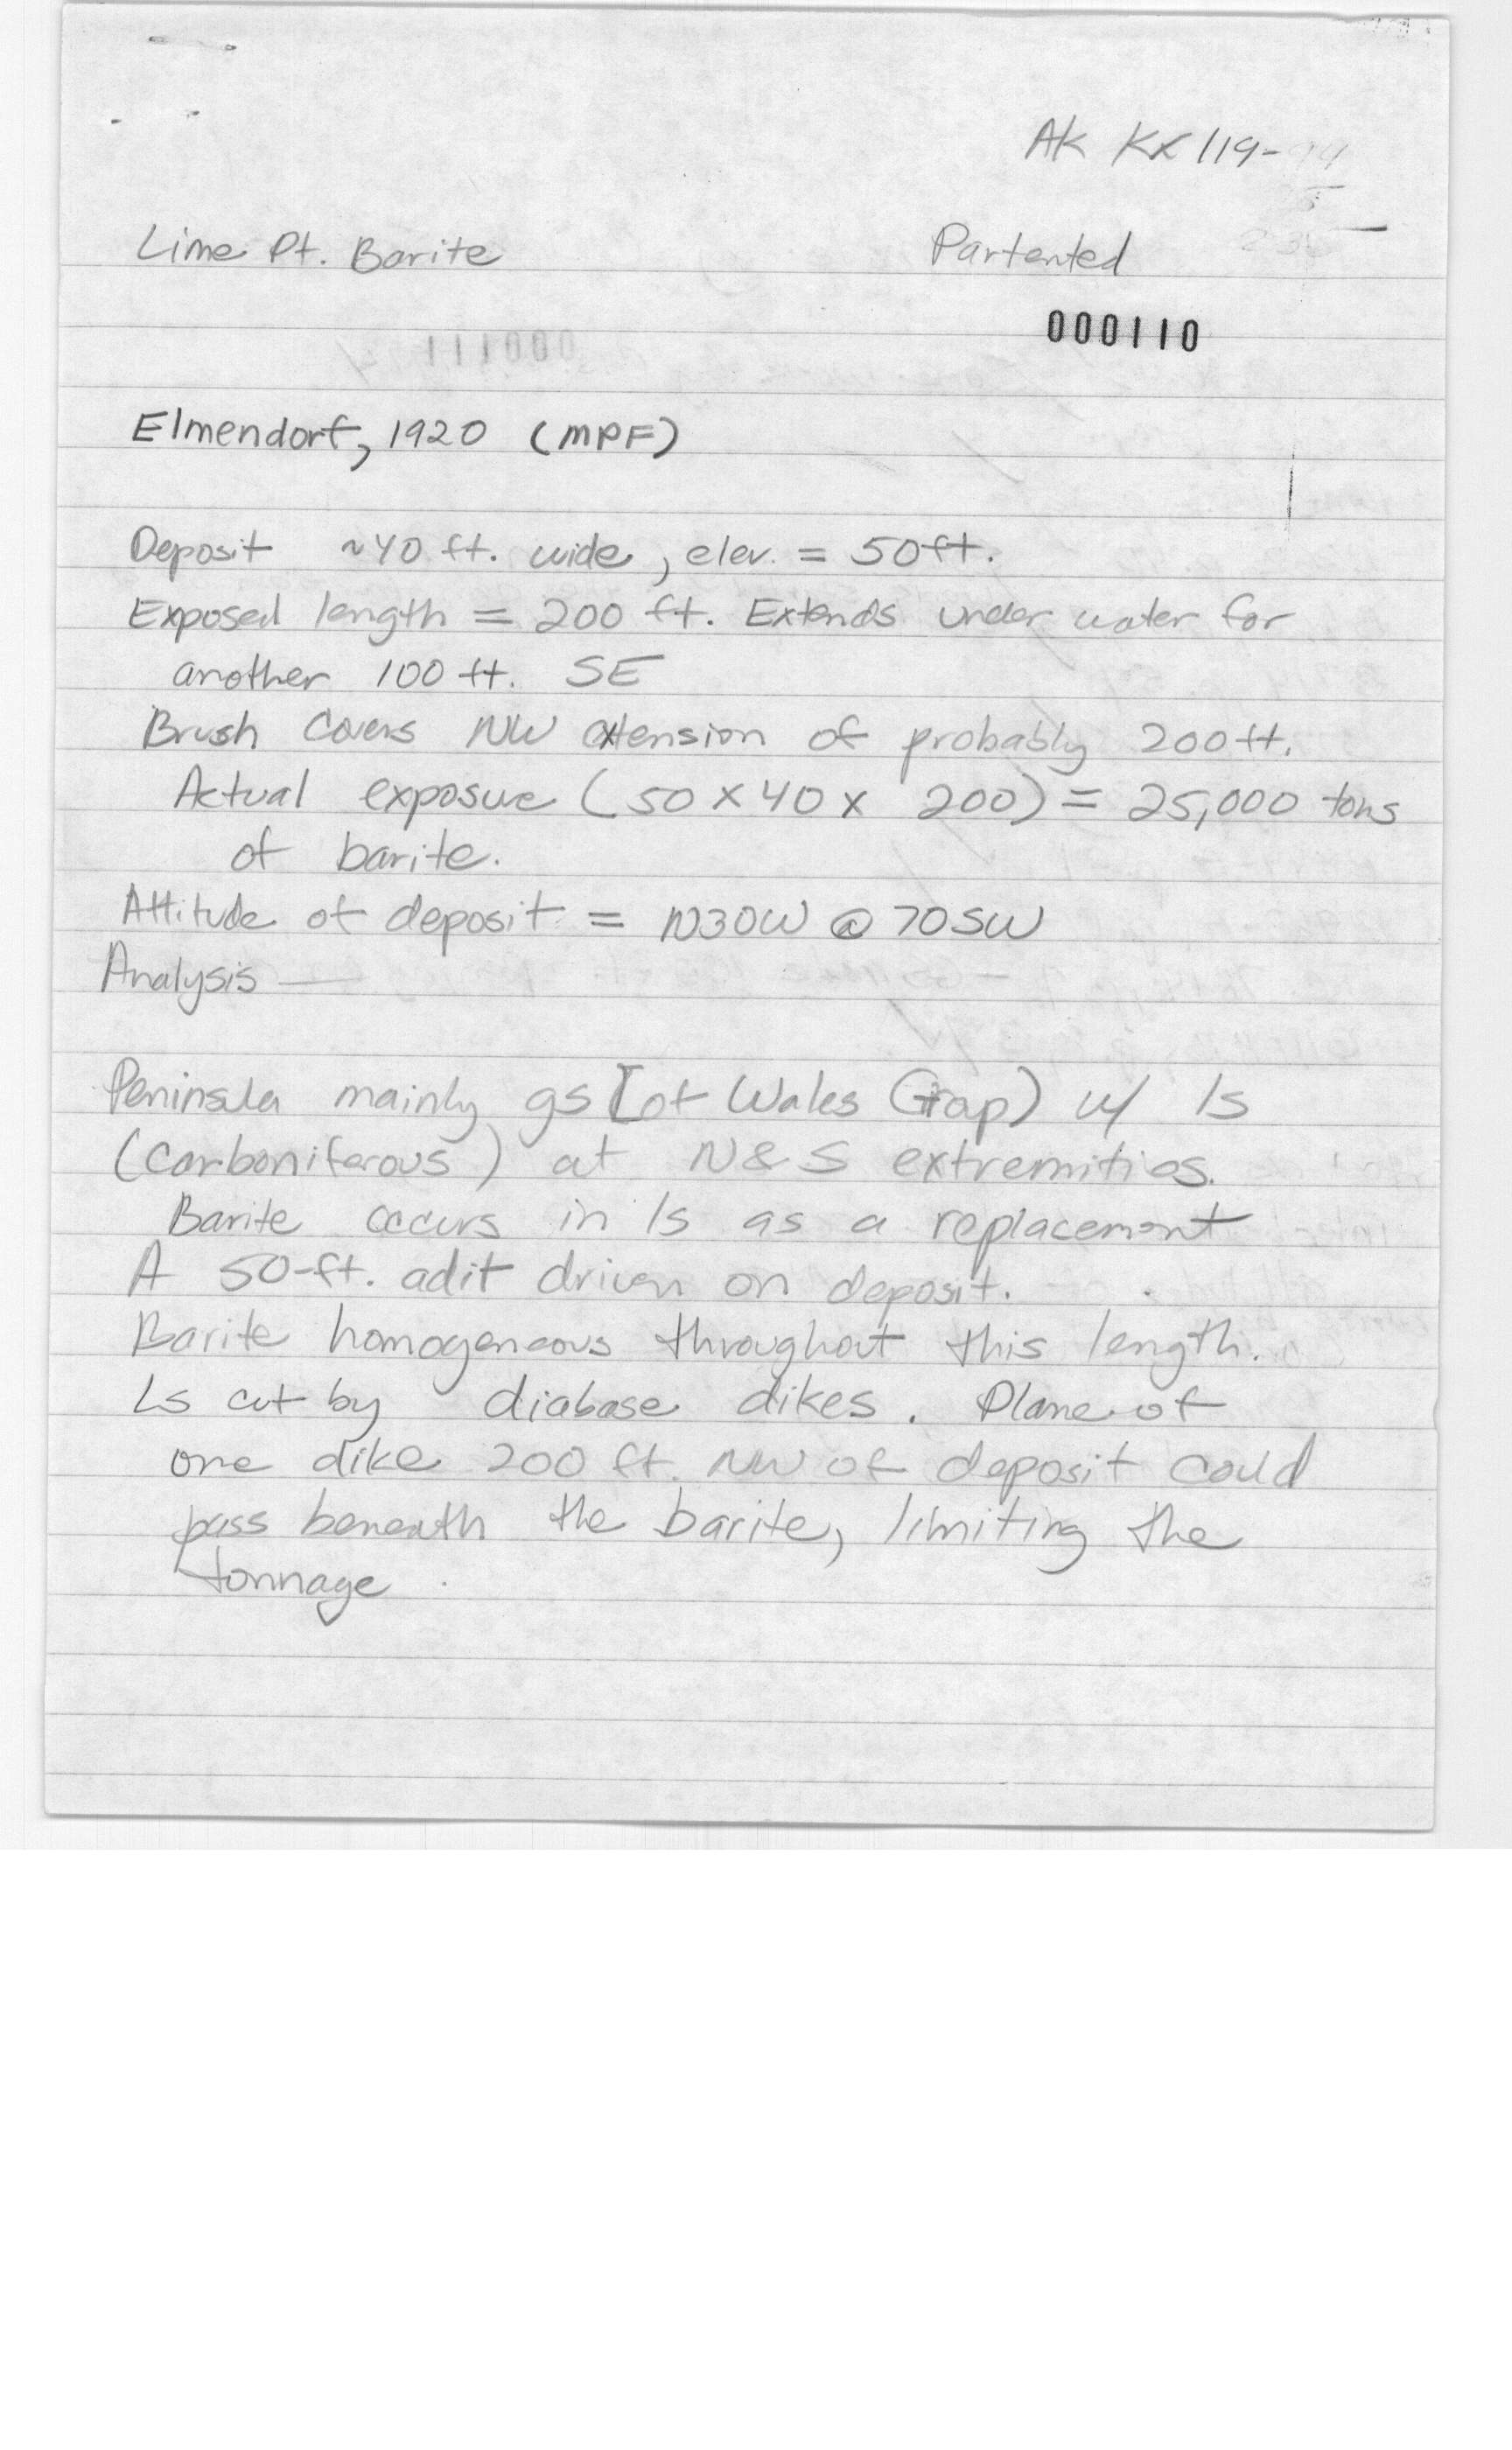 AK KX 119-
Lime Pt. Barite Partented
000110
Elmendorf, 1920 (MPF)
Deposit ~40 ft. wide, elev. = 50ft.
Exposed length = 200 ft. Extends under water for
another 100 ft. SE
Brush covers NW extension of probably 200ft.
Actual exposure (50 x 40 x 200) = 25,000 tons
of barite.
Attitude of deposit = N30W @ 70SW
Analysis —
Peninsula mainly gs [of Wales Grap) w/ ls
(Carboniferous) at N & S extremities.
Barite occurs in ls as a replacement
A 50-ft. adit driven on deposit.
Barite homogeneous throughout this length.
Ls cut by diabase dikes. Plane of
one dike 200 ft. NW of deposit could
pass beneath the barite, limiting the
tonnage.